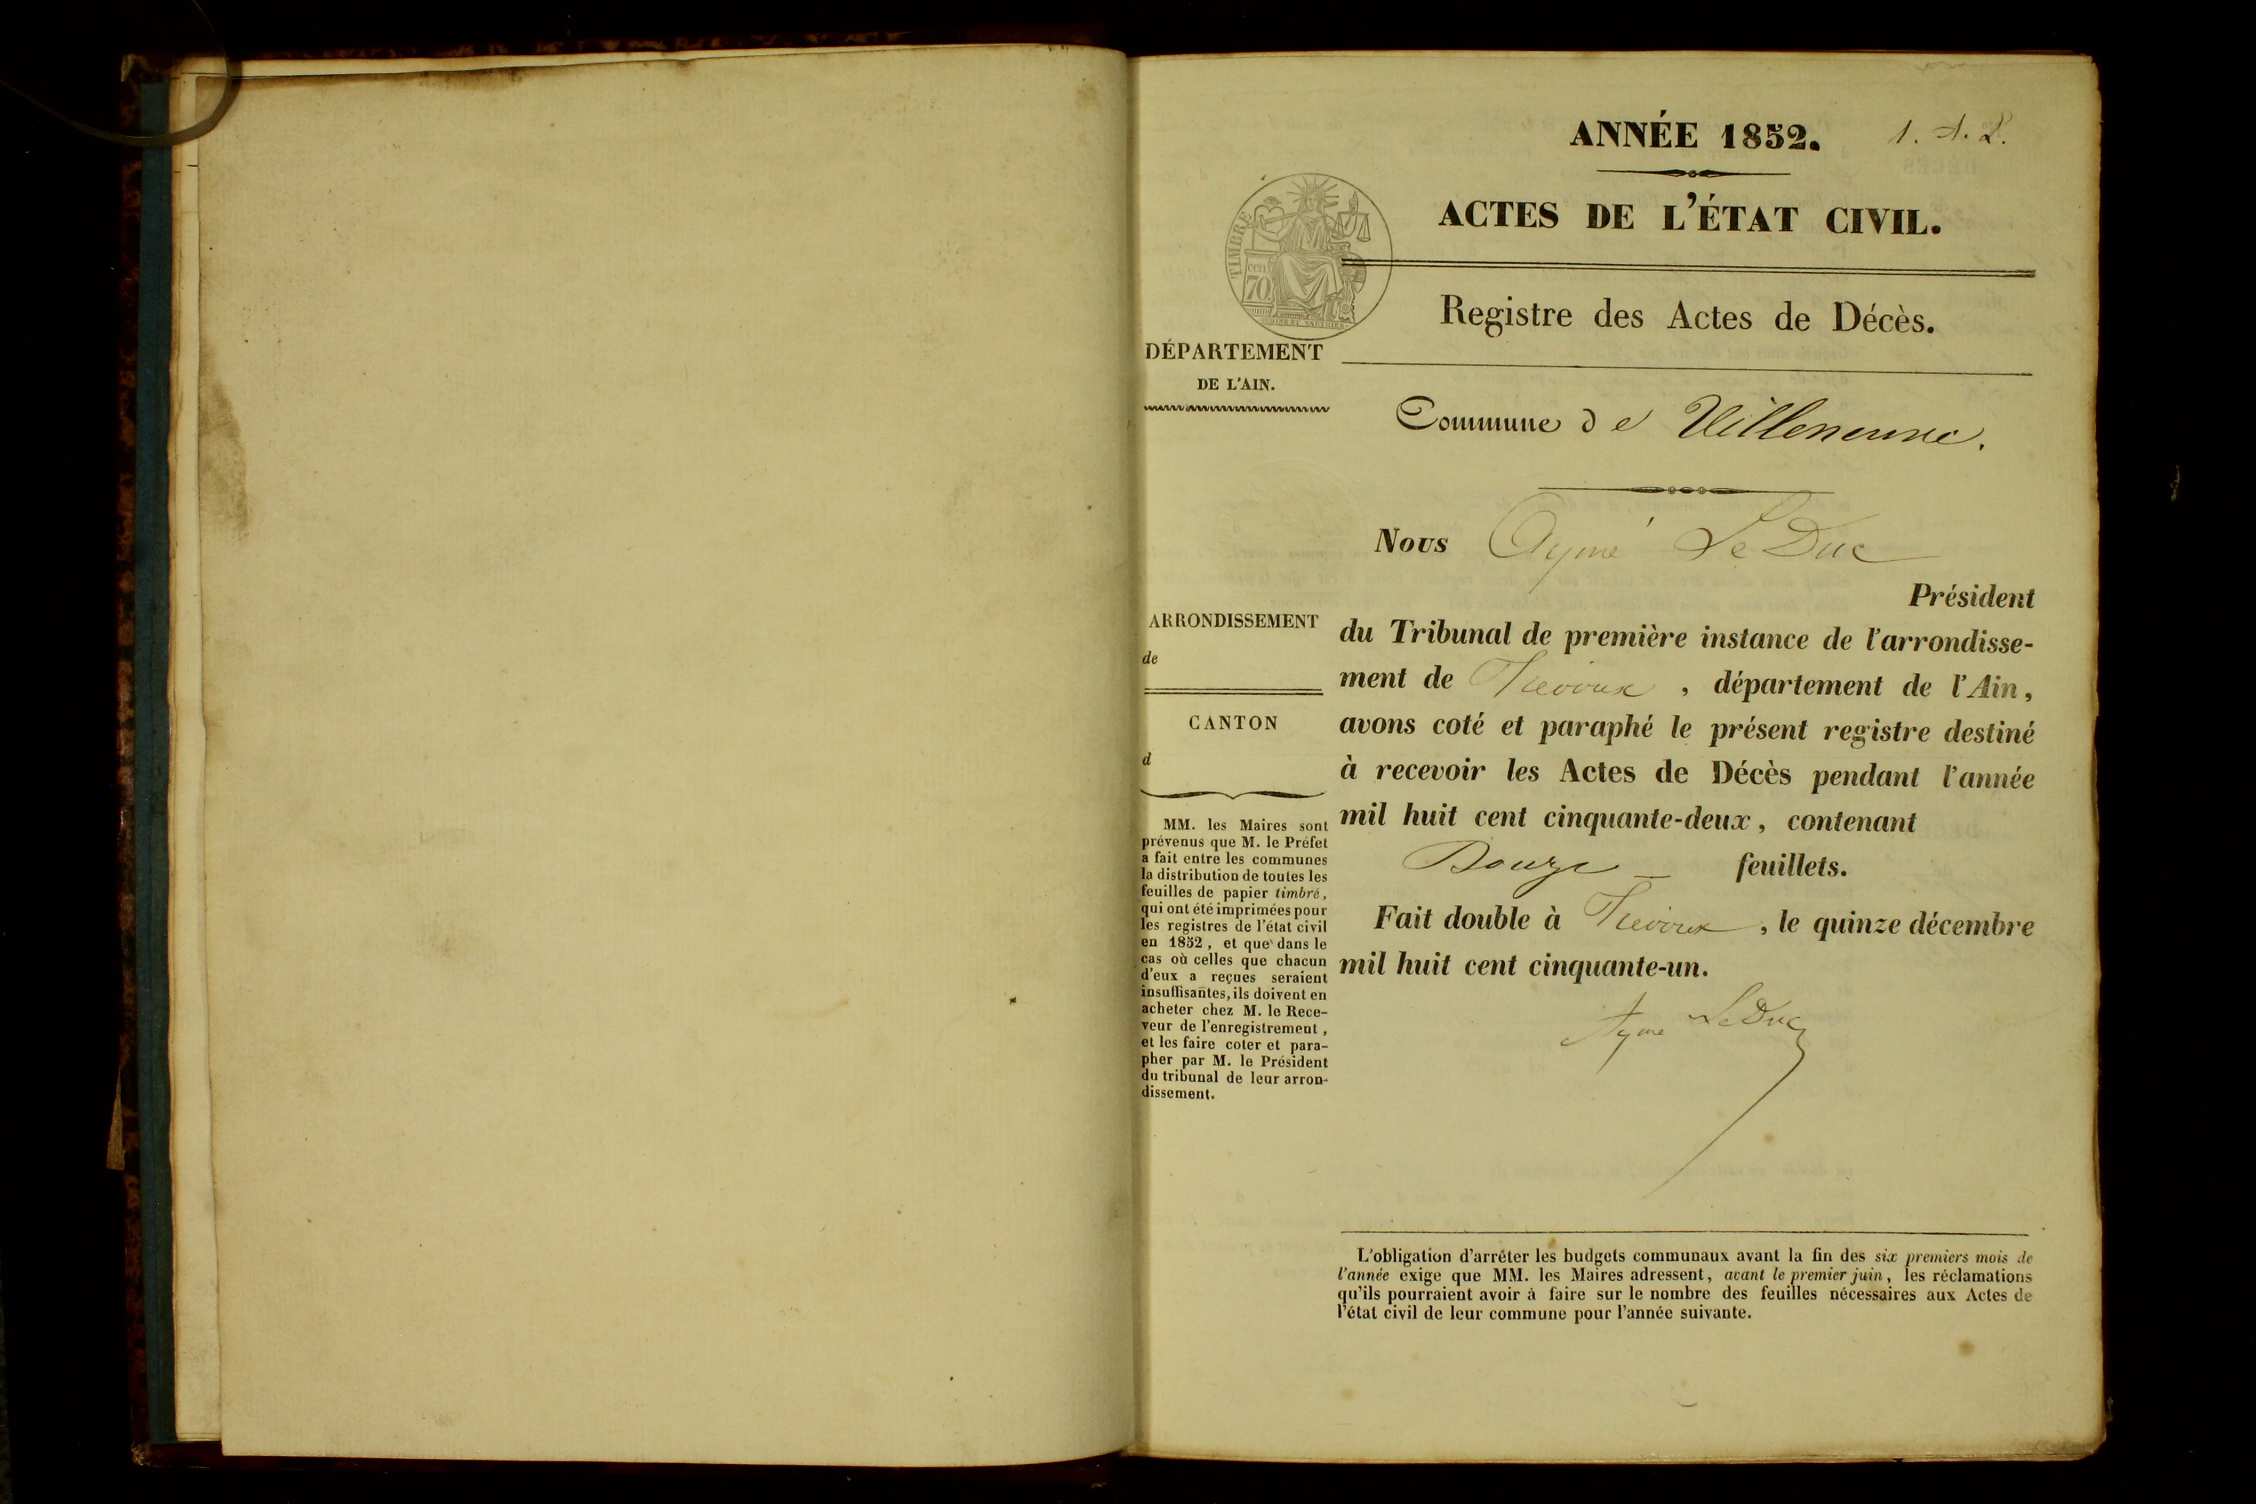 ANNÉE 1852.
1. A. L.
ACTES DE L'ÉTAT CIVIL.
Registre des Actes de Décès.
TIMBRE
cen
70
DÉPARTEMENT
DE L'AIN.
Commune de Villeneuve.
Nous Aymé Le Duc
Président
du Tribunal de première instance de l'arrondisse-
ment de Trevoux, département de l'Ain,
avons coté et paraphé le présent registre destiné
à recevoir les Actes de Décès pendant l'année
mil huit cent cinquante-deux, contenant
Douze feuillets.
Fait double à Trevoux, le quinze décembre
mil huit cent cinquante-un.
Aymé Le Duc
ARRONDISSEMENT
de
CANTON
d
MM. les Maires sont
prévenus que M. le Préfet
a fait entre les communes
la distribution de toutes les
feuilles de papier timbré,
qui ont été imprimées pour
les registres de l'état civil
en 1852, et que dans le
cas où celles que chacun
d'eux a reçues seraient
insuffisantes, ils doivent en
acheter chez M. le Rece-
veur de l'enregistrement,
et les faire coter et para-
pher par M. le Président
du tribunal de leur arron-
dissement.
L'obligation d'arrêter les budgets communaux avant la fin des six premiers mois de
l'année exige que MM. les Maires adressent, avant le premier juin, les réclamations
qu'ils pourraient avoir à faire sur le nombre des feuilles nécessaires aux Actes de
l'état civil de leur commune pour l'année suivante.